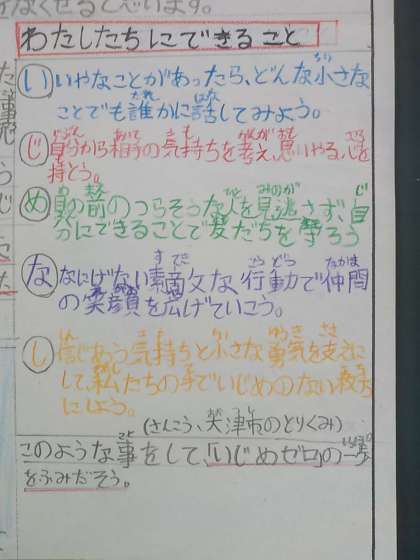 をなくせると思います。
わたしたちにできること
い いやなことがあったら、どんな小さな
ことでも誰かに話してみよう。
じ 自分から相手の気持ちを考え、思いやる心を
持とう。
め 目の前のつらそうな人を見逃さず、自
分にできることで友だちを守ろう
な なにげない素敵な行動で仲間
の笑顔を広げていこう。
し 信じあう気持ちと小さな勇気を支えに
して、私たちの手でいじめのない教室
にしよう。
(さんこう、大津市のとりくみ)
このような事をして、「いじめゼロ」の一歩
をふみだそう。